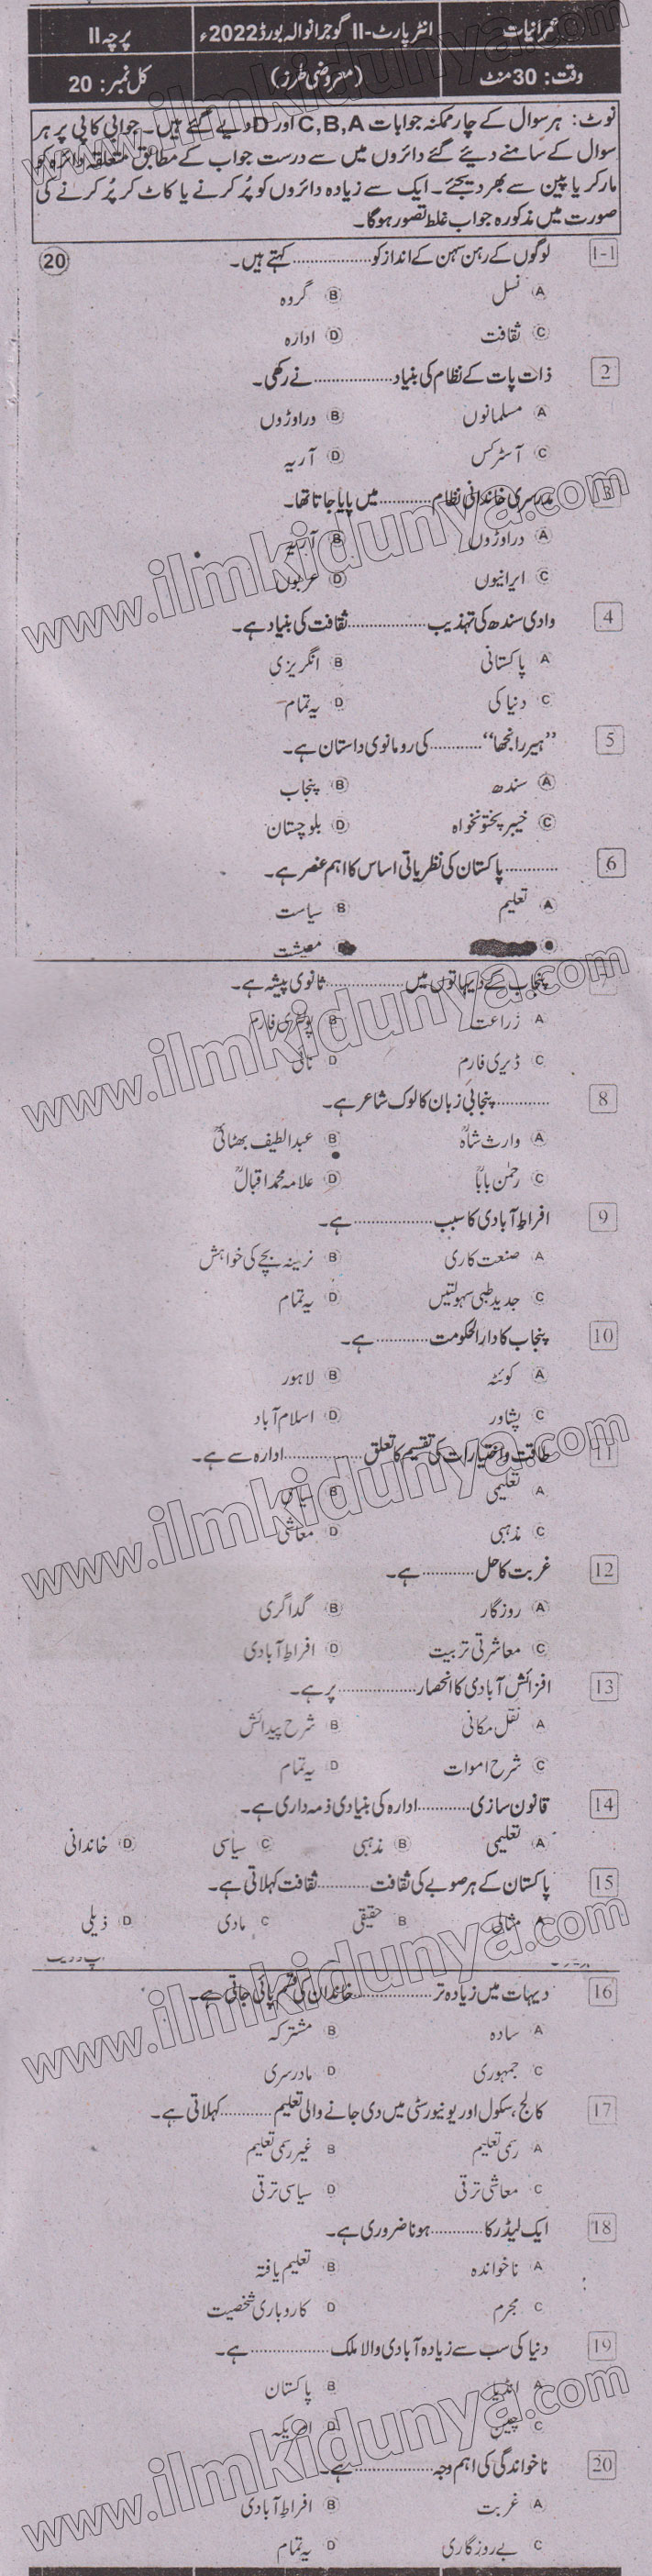 عمرانیات انٹر پارٹ-II گوجرانوالہ بورڈ 2022ء پرچہ II
وقت: 30 منٹ (معروضی طرز) کل نمبر: 20
نوٹ: ہر سوال کے چار ممکنہ جوابات C,B,A اور D دیے گئے ہیں۔ جوابی کاپی پر ہر
سوال کے سامنے دیئے گئے دائروں میں سے درست جواب کے مطابق متعلقہ دائرہ کو
مارکر یا پین سے بھر دیجئے۔ ایک سے زیادہ دائروں کو پُر کرنے یا کاٹ کر پُر کرنے کی
صورت میں مذکورہ جواب غلط تصور ہوگا۔
1-1 لوگوں کے رہن سہن کے انداز کو .......... کہتے ہیں۔ 20
A نسل B گروہ
C ثقافت D ادارہ
2 ذات پات کے نظام کی بنیاد .......... نے رکھی۔
A مسلمانوں B دراوڑوں
C آسٹرکس D آریہ
3 مدرسری خاندانی نظام .......... میں پایا جاتا تھا۔
A دراوڑوں B آریہ
C ایرانیوں D عربوں
4 وادی سندھ کی تہذیب .......... ثقافت کی بنیاد ہے۔
A پاکستانی B انگریزی
C دنیا کی D یہ تمام
5 ”ہیر رانجھا“ .......... کی رومانوی داستان ہے۔
A سندھ B پنجاب
C خیبر پختونخواہ D بلوچستان
6 .......... پاکستان کی نظریاتی اساس کا اہم عنصر ہے۔
A تعلیم B سیاست
معیشت
7 پنجاب کے دیہاتوں میں .......... ثانوی پیشہ ہے۔
A زراعت B پولٹری فارم
C ڈیری فارم D نائی
8 .......... پنجابی زبان کا لوک شاعر ہے۔
A وارث شاہؒ B عبداللطیف بھٹائیؒ
C رحمٰن باباؒ D علامہ محمد اقبالؒ
9 افراطِ آبادی کا سبب .......... ہے۔
A صنعت کاری B نرینہ بچے کی خواہش
C جدید طبی سہولتیں D یہ تمام
10 پنجاب کا دارالحکومت .......... ہے۔
A کوئٹہ B لاہور
C پشاور D اسلام آباد
11 طاقت و اختیارات کی تقسیم کا تعلق .......... ادارہ سے ہے۔
A تعلیمی B سیاسی
C مذہبی D معاشی
12 غربت کا حل .......... ہے۔
A روزگار B گداگری
C معاشرتی تربیت D افراطِ آبادی
13 افزائش آبادی کا انحصار .......... پر ہے۔
A نقل مکانی B شرح پیدائش
C شرح اموات D یہ تمام
14 قانون سازی .......... ادارہ کی بنیادی ذمہ داری ہے۔
A تعلیمی B مذہبی C سیاسی D خاندانی
15 پاکستان کے ہر صوبے کی ثقافت .......... ثقافت کہلاتی ہے۔
A مثالی B حقیقی C مادی D ذیلی
16 دیہات میں زیادہ تر .......... خاندان کی قسم پائی جاتی ہے۔
A سادہ B مشترکہ
C جمہوری D مادرسری
17 کالج، سکول اور یونیورسٹی میں دی جانے والی تعلیم .......... کہلاتی ہے۔
A رسمی تعلیم B غیر رسمی تعلیم
C معاشی ترقی D سیاسی ترقی
18 ایک لیڈر کا .......... ہونا ضروری ہے۔
A ناخواندہ B تعلیم یافتہ
C مجرم D کاروباری شخصیت
19 دنیا کی سب سے زیادہ آبادی والا ملک .......... ہے۔
A انڈیا B پاکستان
C چین D امریکہ
20 ناخواندگی کی اہم وجہ .......... ہے۔
A غربت B افراطِ آبادی
C بے روزگاری D یہ تمام
www.ilmkidunya.com
www.ilmkidunya.com
www.ilmkidunya.com
www.ilmkidunya.com
www.ilmkidunya.com
www.ilmkidunya.com